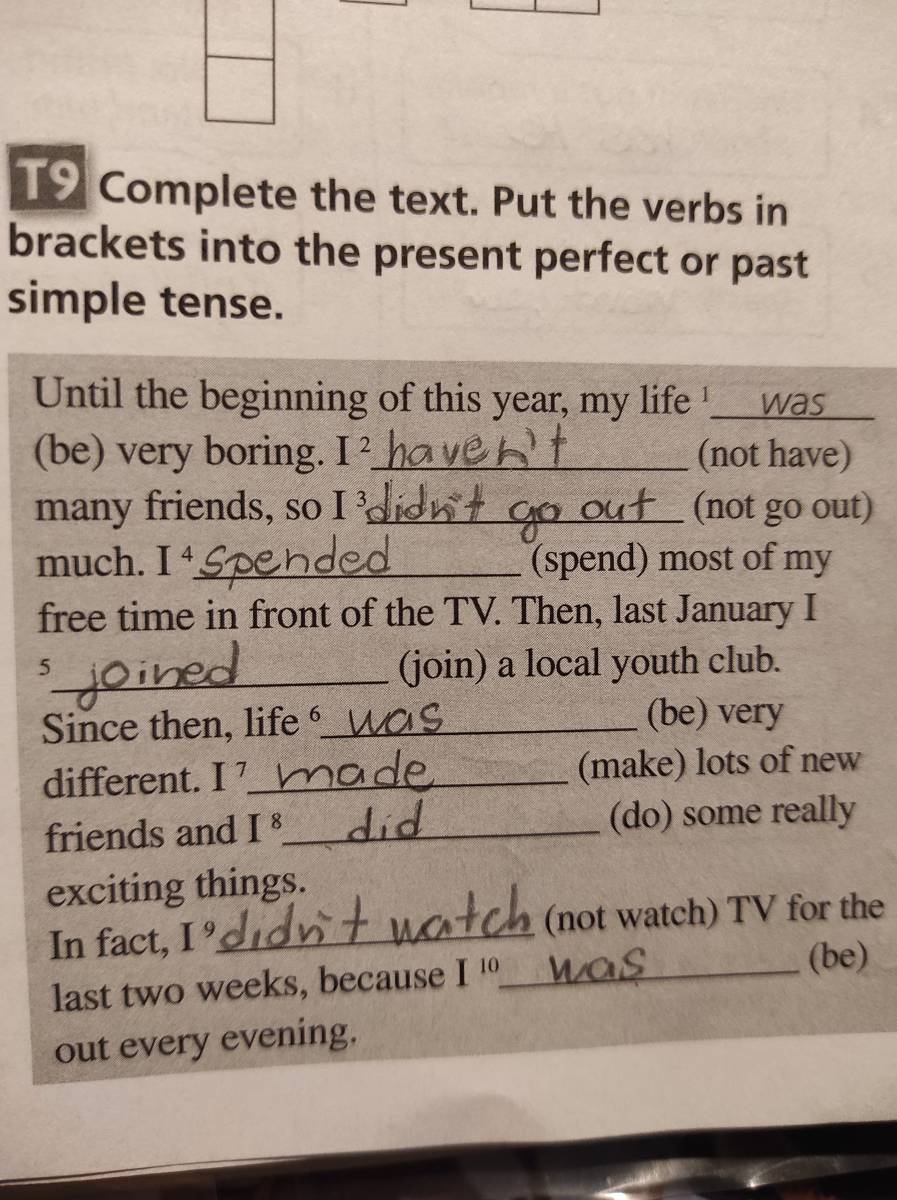 T9 Complete the text. Put the verbs in
brackets into the present perfect or past
simple tense.
Until the beginning of this year, my life 1 was
(be) very boring. I 2 haven't (not have)
many friends, so I 3 didn't go out (not go out)
much. I 4 Spended (spend) most of my
free time in front of the TV. Then, last January I
5 joined (join) a local youth club.
Since then, life 6 was (be) very
different. I 7 made (make) lots of new
friends and I 8 did (do) some really
exciting things.
In fact, I 9 didn't watch (not watch) TV for the
last two weeks, because I 10 was (be)
out every evening.